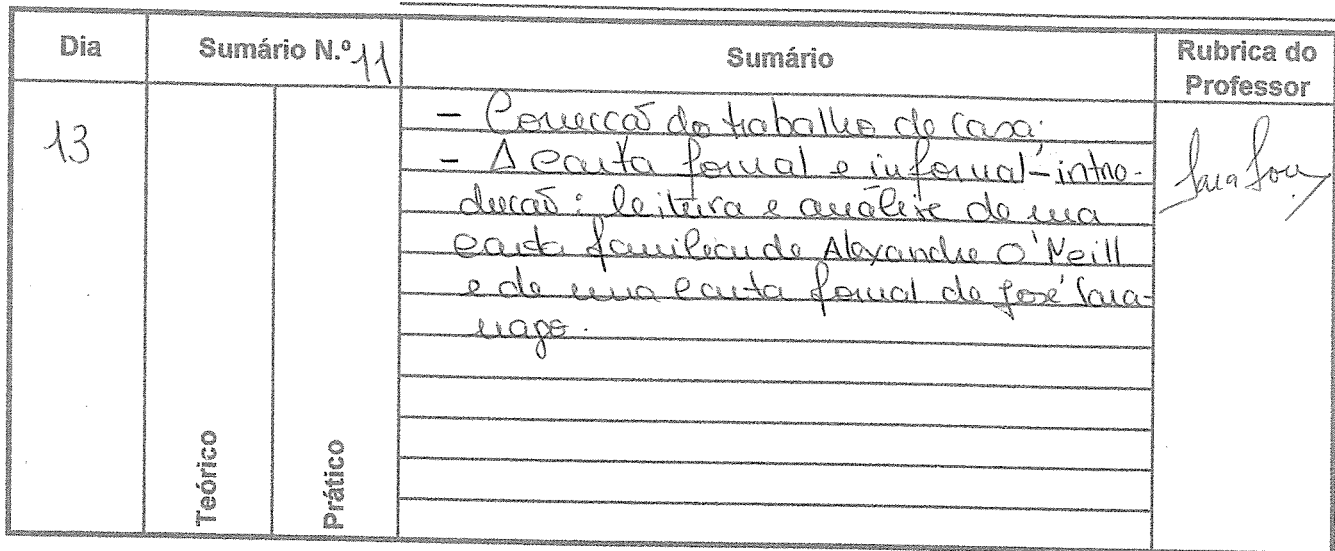 Dia Sumário N.º 11 Sumário Rubrica do Professor
13
- Correcção do trabalho de casa.
- A carta formal e informal - intro-
dução: leitura e análise de uma
carta familiar de Alexandre O'Neill
e de uma carta formal de José Sara-
mago.
Sara
Teórico
Prático